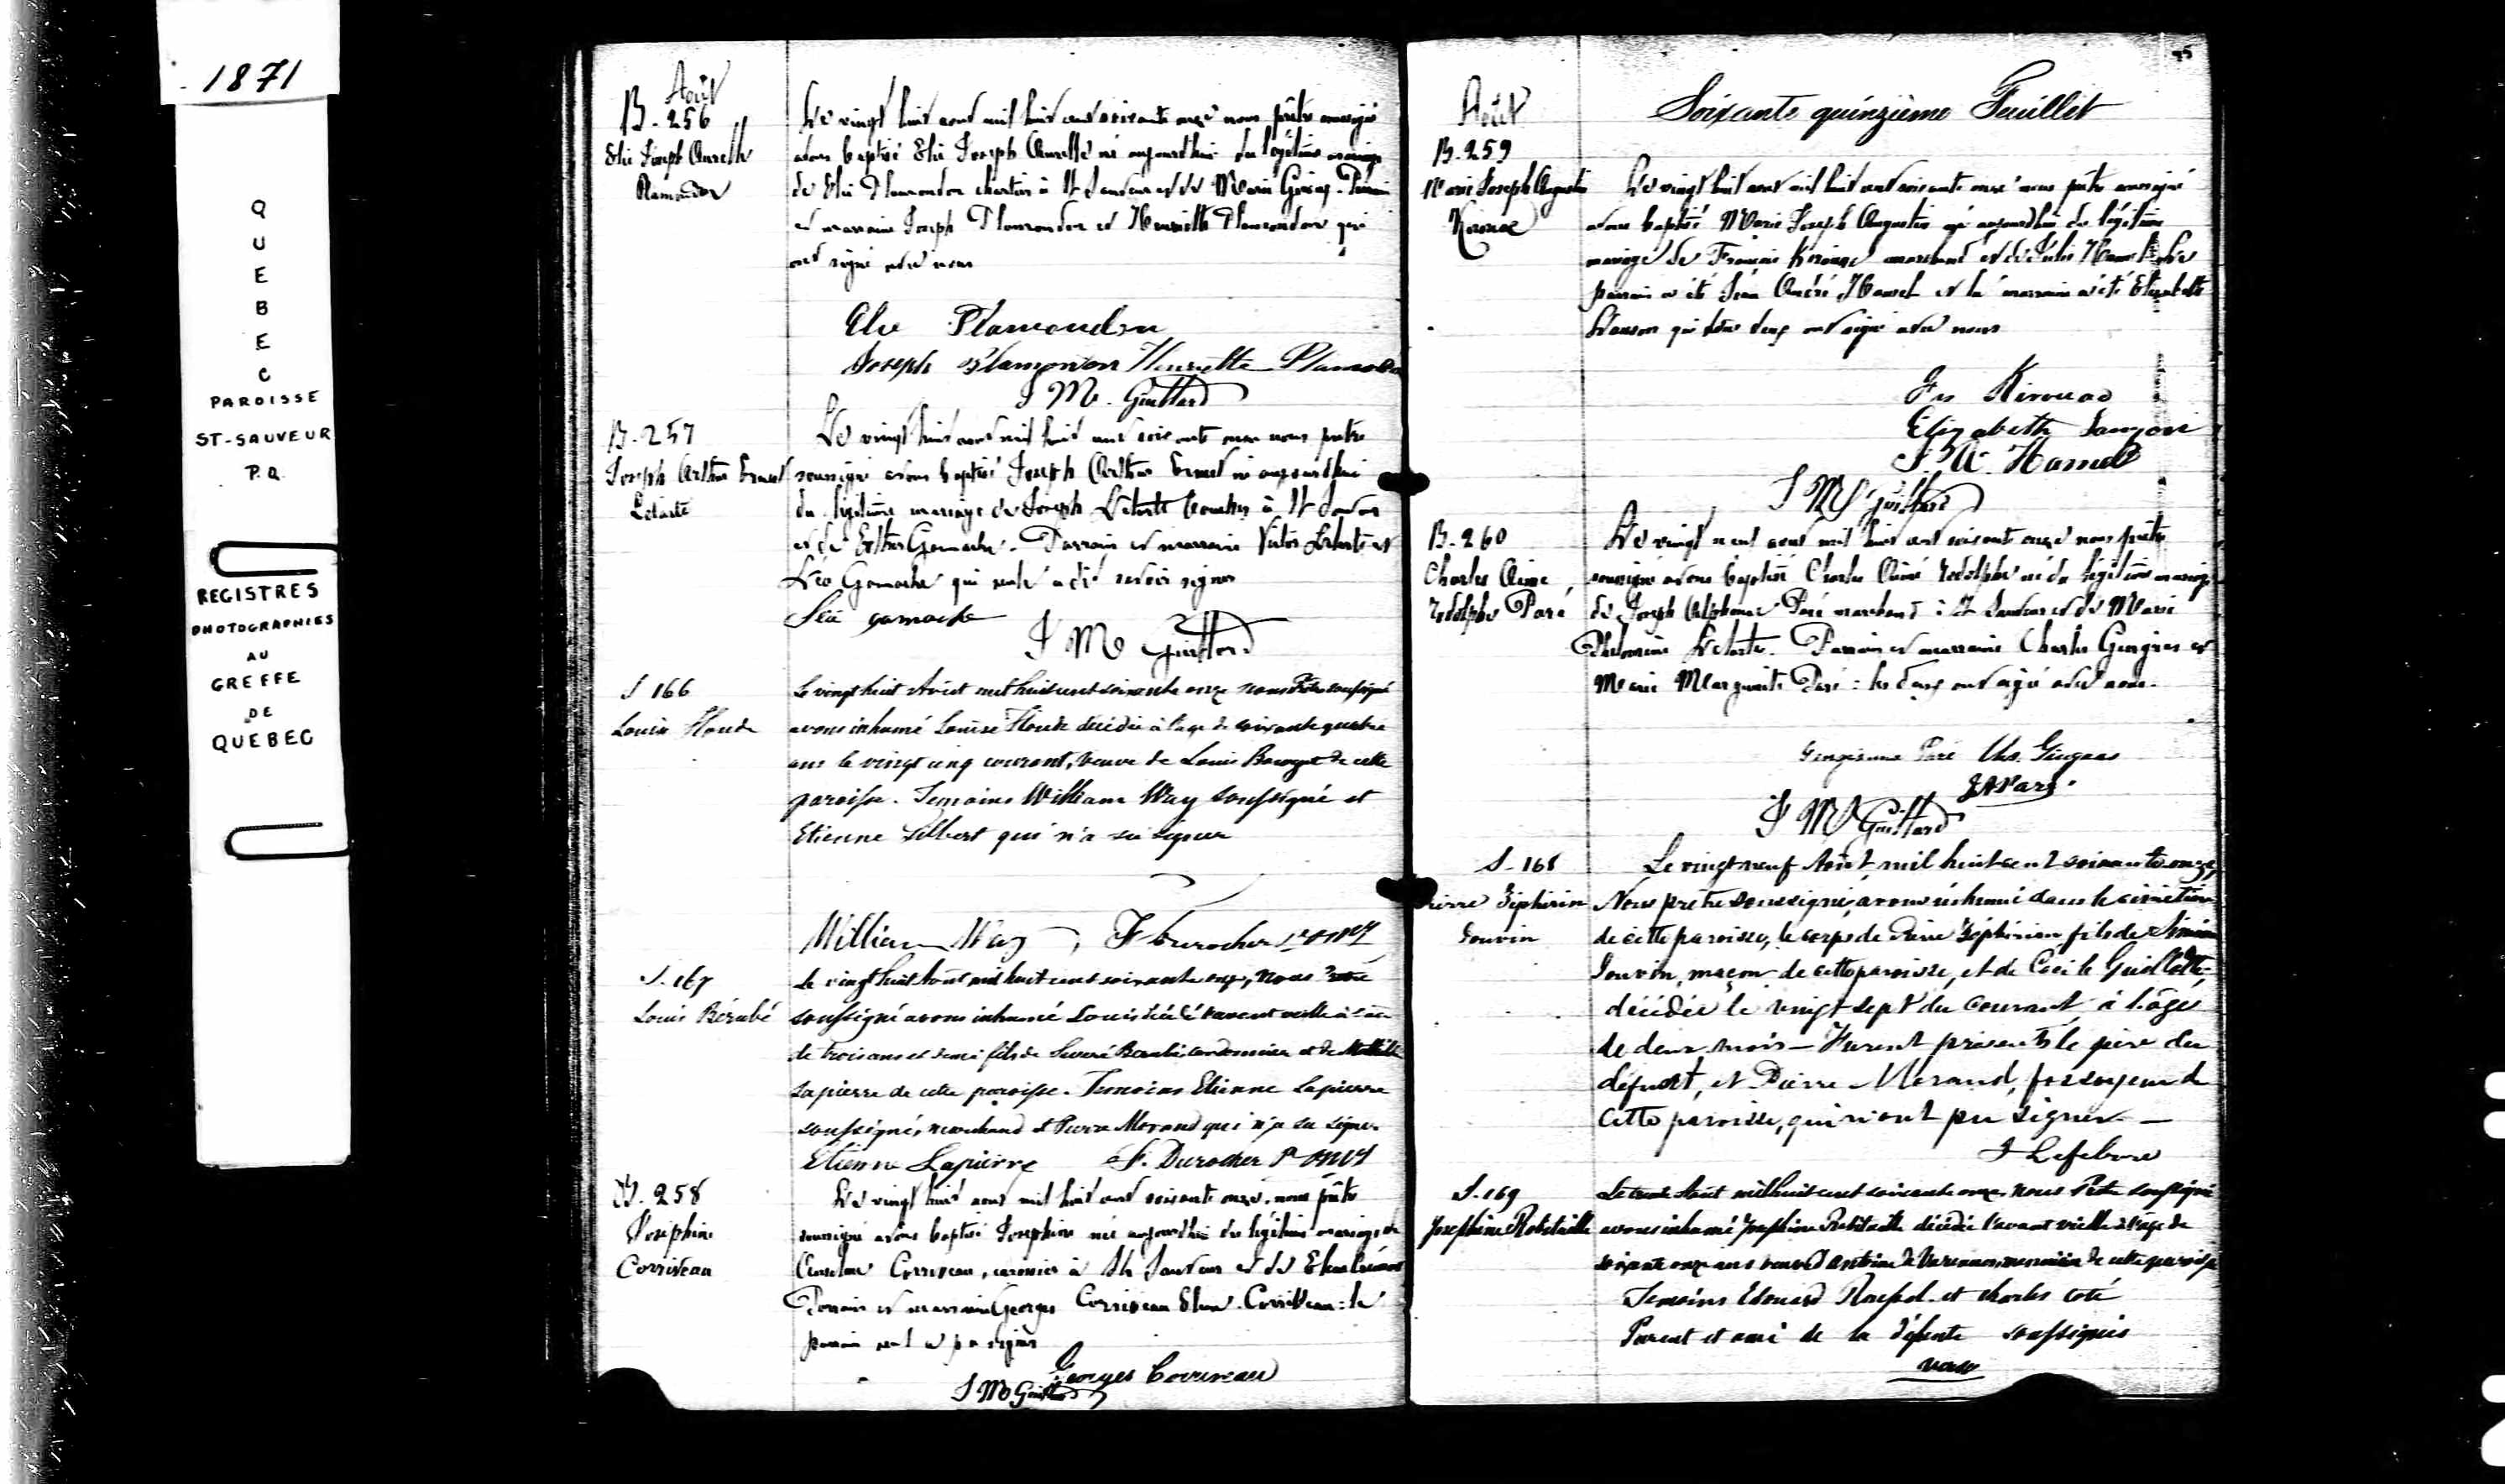 1871
QUEBEC
PAROISSE
ST-SAUVEUR
P.Q.
REGISTRES
PHOTOGRAPHIES
AU
GREFFE
DE
QUEBEC
Août
B. 256
Elie Joseph Aurelle
Plamondon
Le vingt huit aout mil huit cent soixante onze nous prêtre soussigné
avons baptisé Elie Joseph Aurelle né aujourdhui du légitime mariage
de Elie Plamondon charretier à St Sauveur et de Marie Parrain
et marraine Joseph Plamondon et Henriette Plamondon qui
ont signé avec nous
Elie Plamondon
Joseph Plamondon Henriette Plamondon
J M. Guillard
B. 257
Joseph Arthur Ernest
Letarte
Le vingt huit aout mil huit cent soixante onze nous prêtre
soussigné avons baptisé Joseph Arthur Ernest né aujourdhui
du légitime mariage de Joseph Letarte boucher à St Sauveur
et de Esther Gamache. Parrain et marraine Victor Letarte et
Léa Gamache qui seule a dit savoir signer
Léa gamache
J M Guillard
S 166
Louise Houde
Le vingt huit Août mil huit cent soixante onze nous Prêtre soussigné
avons inhumé Louise Houde décédée à l'age de soixante quatre
ans le vingt cinq courant, veuve de Louis de cette
paroisse. Temoins William Way soussigné et
Etienne qui n'a su signer
William Way, F Durocher Ptre OMI
S. 167
Louis Bérubé
Le vingt huit Août mil huit cent soixante onze, nous Prêtre
soussigné avons inhumé Louis décédé l'avant veille à l'age
de trois ans et demi fils de Sévéré Berubé cordonnier et de Mathilde
Lapierre de cette paroisse. Temoins Etienne Lapierre
soussigné, marchand et Pierre Morand qui n'a su signer
Etienne Lapierre F. Durocher P OMI
B. 258
Josephine
Corriveau
Le vingt huit aout mil huit cent soixante onze, nous prêtre
soussigné avons baptisé Josephine née aujourdhui du légitime mariage de
Anselme Corriveau, à St Sauveur et de
Parrain et marraine Georges Corriveau Corriveau: le
parrain seul a pu signer
Georges Corriveau
J M Guillard
75
Août
Soixante quinzième Feuillet
B. 259
Marie Joseph Augustin
Kirouac
Le vingt huit aout mil huit cent soixante onze nous prêtre soussigné
avons baptisé Marie Joseph Augustin né aujourdhui du légitime
mariage de François Kirouac marchand et de Julie Hamel. Le
parrain a été Jean André Hamel et la marraine a été Elizabeth
Lanson qui tous deux ont signé avec nous
Frs Kirouac
Elizabeth
J. A. Hamel
J M Guillard
B. 260
Charles Aimé
Rodolphe Paré
Le vingt neuf aout mil huit cent soixante onze nous prêtre
soussigné avons baptisé Charles Aimé Rodolphe né du légitime mariage
de Joseph Alphonse Paré marchand à St Sauveur et de Marie
Philomène Letarte. Parrain et marraine Charles Gingras et
Marie Marguerite Paré: les deux ont signé avec nous.
Paré Chs. Gingras
J A Paré
J M Guillard
S. 168
Pierre Zéphirin
Jouvin
Le vingt neuf Août mil huit cent soixante onze,
Nous prêtre soussigné, avons inhumé dans le cimetière
de cette paroisse, le corps de Pierre Zéphirin fils de Siméon
Jouvin, maçon de cette paroisse, et de Cécile Guillotte,
décédée le vingt sept du courant à l'âge
de deux mois — Furent présents le père du
défunt, et Pierre Morand, fossoyeur de
cette paroisse, qui n'ont pu signer —
J Lefebvre
S. 169
Josephine Robitaille
Le trente Août mil huit cent soixante onze, nous Prêtre soussigné
avons inhumé Josephine Robitaille décédée l'avant veille à l'age de
soixante onze ans veuve d'Antoine de Varennes, menuisier de cette paroisse
Temoins Edouard et charles coté
Parent et ami de la défunte soussignés